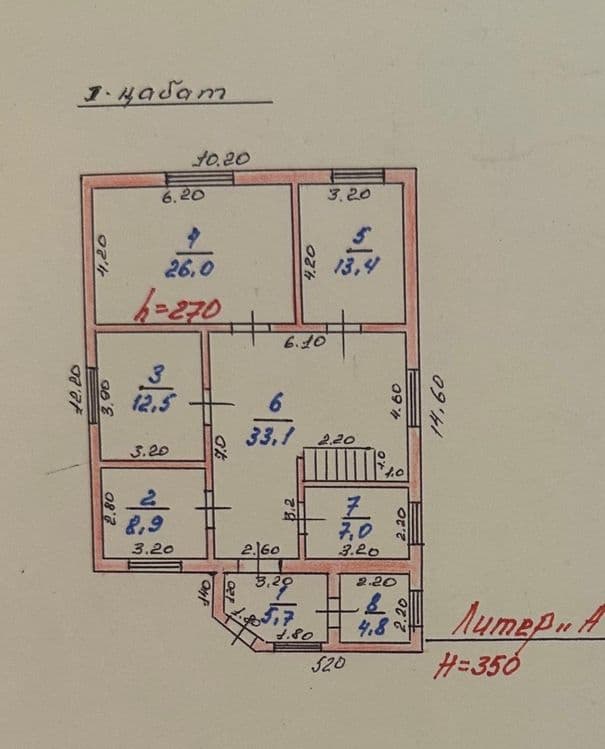 I-цабат
10.20
6.20
3.20
4.20
4
26,0
4.20
5
13,4
h=270
6.10
12.20
3.90
3
12,5
3.20
7.0
6
33,1
4.60
14,60
2.20
1.0
1.0
2.80
2
8,9
3.20
3.2
7
7,0
3.20
2.20
2.60
140
120
3.20
1
5,7
1.80
2.20
8
4,8
2.20
520
Литер „А
H=350